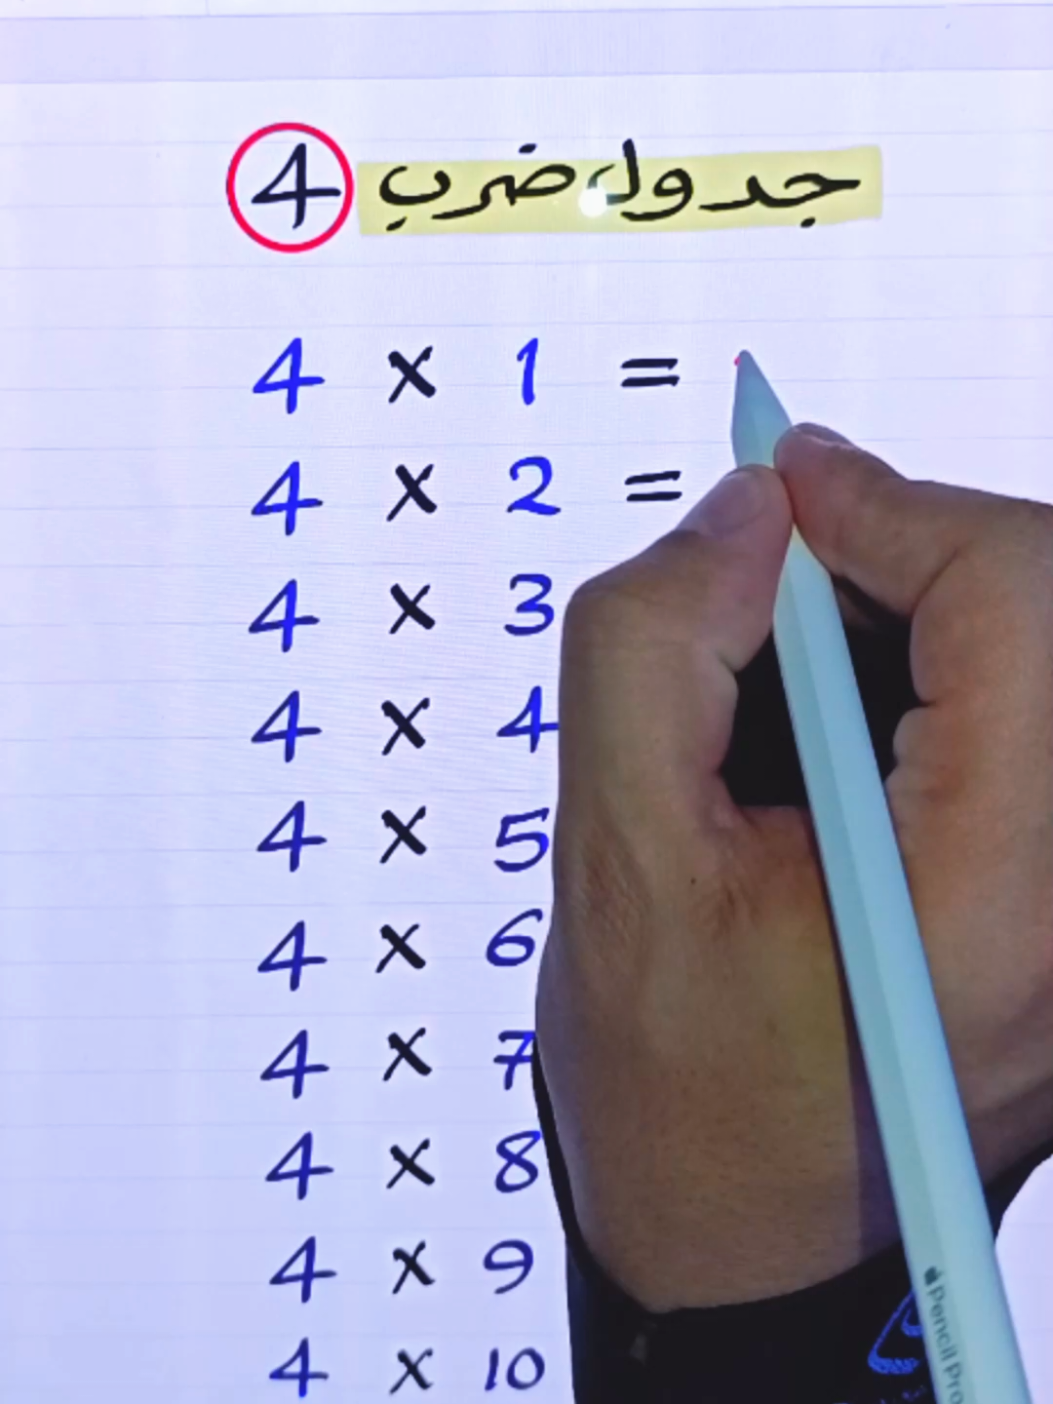 جدول ضرب 4
4 × 1 =
4 × 2 =
4 × 3
4 × 4
4 × 5
4 × 6
4 × 7
4 × 8
4 × 9
4 × 10
Pencil Pro